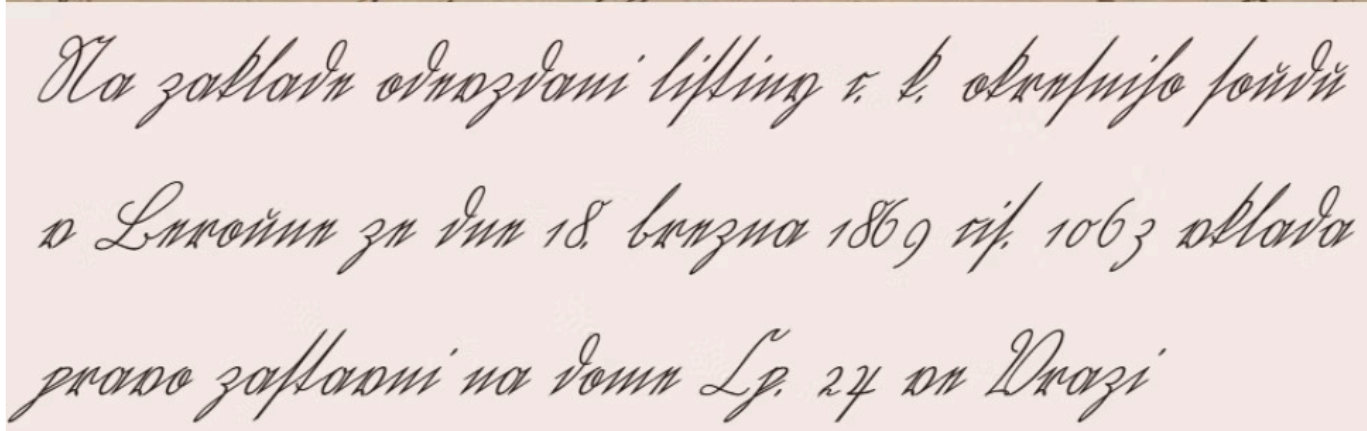 Na zaklade odevzdani listiny c. k. okresniho soudu
v Beroune ze dne 18. brezna 1869 cis. 1063 vklada
pravo zastavni na dome Cp. 24 ve Vrazi